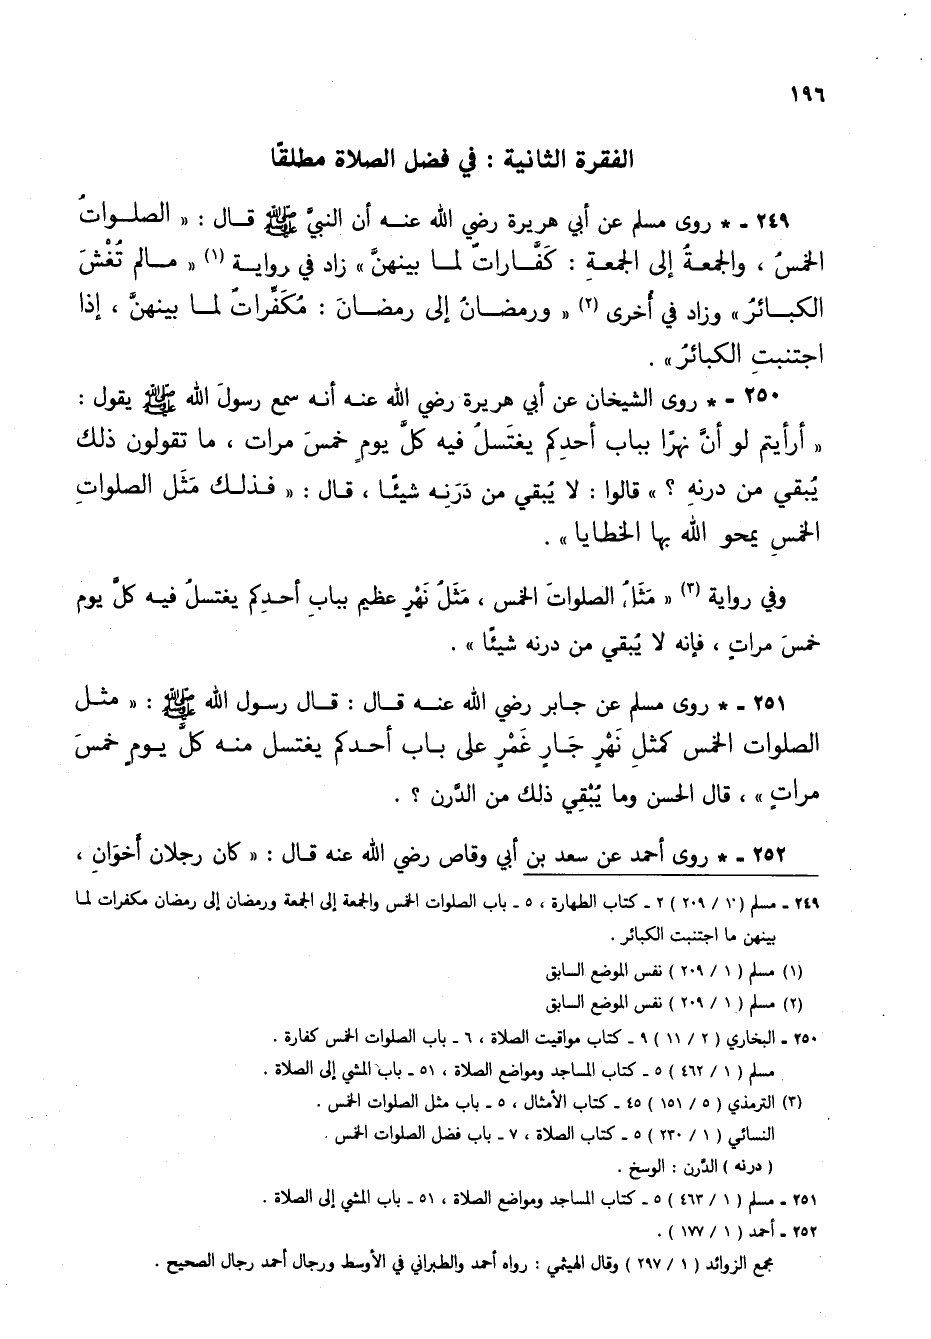 ١٩٦
الفقرة الثانية : في فضل الصلاة مطلقًا
٢٤٩ - * روى مسلم عن أبي هريرة رضي الله عنه أن النبيَّ ﷺ قال : « الصلواتُ
الخمسُ ، والجمعةُ إلى الجمعةِ : كَفَّاراتٌ لما بينهنَّ » زاد في رواية (١) « مالم تُغْشَ
الكبائرُ » وزاد في أُخرى (٢) « ورمضانُ إلى رمضانَ : مُكَفِّراتٌ لما بينهنَّ ، إذا
اجتنبتِ الكبائرُ » .
٢٥٠ - * روى الشيخان عن أبي هريرة رضي الله عنه أنه سمع رسولَ الله ﷺ يقول :
« أرأيتم لو أنَّ نهرًا بباب أحدِكم يغتَسلُ فيه كلَّ يومٍ خمسَ مرات ، ما تقولون ذلك
يُبقي من درنهِ ؟ » قالوا : لا يُبقي من دَرَنِه شيئًا ، قال : « فذلك مَثَل الصلواتِ
الخمسِ يمحو الله بها الخطايا » .
وفي رواية (٣) « مَثَلُ الصلواتَ الخمس ، مَثَلُ نَهْرٍ عظيم ببابِ أحدِكم يغتسلُ فيه كلَّ يوم
خمسَ مراتٍ ، فإنه لا يُبقي من درنه شيئًا » .
٢٥١ - * روى مسلم عن جابر رضي الله عنه قال : قال رسول الله ﷺ : « مثل
الصلوات الخمس كمثلِ نَهْرٍ جَارٍ غَمْرٍ على باب أحدكم يغتسل منه كلَّ يومٍ خمسَ
مراتٍ » ، قال الحسن وما يُبْقِي ذلك من الدَّرن ؟ .
٢٥٢ - * روى أحمد عن سعد بن أبي وقاص رضي الله عنه قال : « كان رجلان أخوَانِ ،
٢٤٩ - مسلم ( ١ / ٢٠٩ ) ٢ - كتاب الطهارة ، ٥ - باب الصلوات الخمس والجمعة إلى الجمعة ورمضان إلى رمضان مكفرات لما
بينهن ما اجتنبت الكبائر .
(١) مسلم ( ١ / ٢٠٩ ) نفس الموضع السابق
(٢) مسلم ( ١ / ٢٠٩ ) نفس الموضع السابق
٢٥٠ - البخاري ( ٢ / ١١ ) ٩ - كتاب مواقيت الصلاة ، ٦ - باب الصلوات الخمس كفارة .
مسلم ( ١ / ٤٦٢ ) ٥ - كتاب المساجد ومواضع الصلاة ، ٥١ - باب المشي إلى الصلاة .
(٣) الترمذي ( ٥ / ١٥١ ) ٤٥ - كتاب الأمثال ، ٥ - باب مثل الصلوات الخمس .
النسائي ( ١ / ٢٣٠ ) ٥ - كتاب الصلاة ، ٧ - باب فضل الصلوات الخمس .
( درنه ) الدَّرن : الوسخ .
٢٥١ - مسلم ( ١ / ٤٦٣ ) ٥ - كتاب المساجد ومواضع الصلاة ، ٥١ - باب المشي إلى الصلاة .
٢٥٢ - أحمد ( ١ / ١٧٧ ) .
مجمع الزوائد ( ١ / ٢٩٧ ) وقال الهيثمي : رواه أحمد والطبراني في الأوسط ورجال أحمد رجال الصحيح .